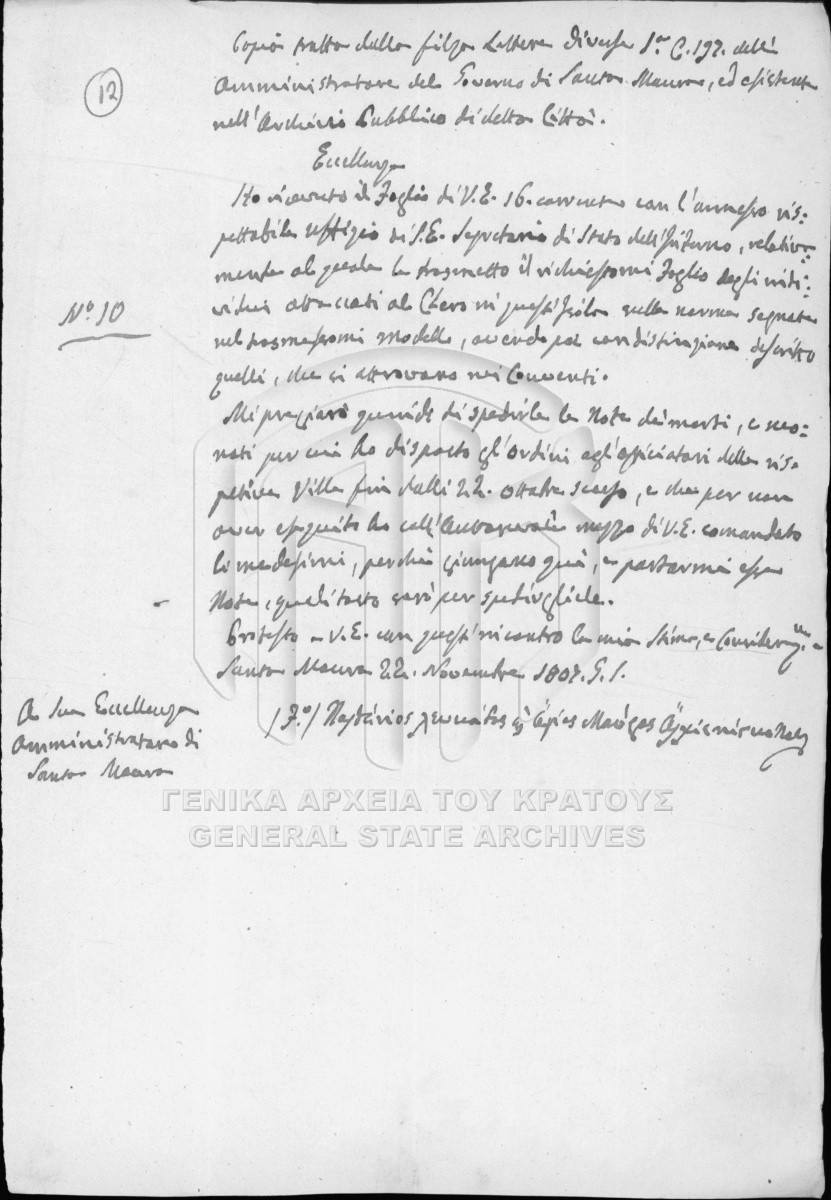 Copia tratta dalla filza Lettere Diverse 1.a C. 197. dell'
12
Amministratore del Governo di Santa Maura, ed esistente
nell'Archivio Pubblico di detta Città.
Eccellenza
Ho ricevuto il Foglio di V.E. 16. corrente con l'annesso ris=
pettabile uffizio di S.E. Segretario di Stato dell'Interno, relativa=
mente al quale le trasmetto il richiestomi Foglio degli indi=
vidui attaccati al Clero in quest'Isola sulla norma segnata
No. 10
nel trasmessomi modello, avendo poi con distinzione descritto
quelli, che si attrovano nei Conventi.
Mi pregiarò quindi di spedirle le Note dei morti, e neo=
nati per cui ho disposto gl'ordini agl'officiatori delle ris=
pettive Ville fin dalli 22. ottobre scorso, e che per non
aver eseguito ho coll'Autorevole mezzo di V.E. comandato
li medesimi, perchè giungano quì, e portarmi esse
Note, quali tosto sarò per spedirgliele.
Protesto a V.E. con quest'incontro la mia Stima, e Considerazne.
Santa Maura 22. Novembre 1807. S. S.
A Sua Eccellenza
Amministratore di
Santa Maura
/ F.o / Παρθένιος λευκάδος ϗ Ἁγίας Μαύρας Ἀρχιεπίσκοπος
ΓΕΝΙΚΑ ΑΡΧΕΙΑ ΤΟΥ ΚΡΑΤΟΥΣ
GENERAL STATE ARCHIVES